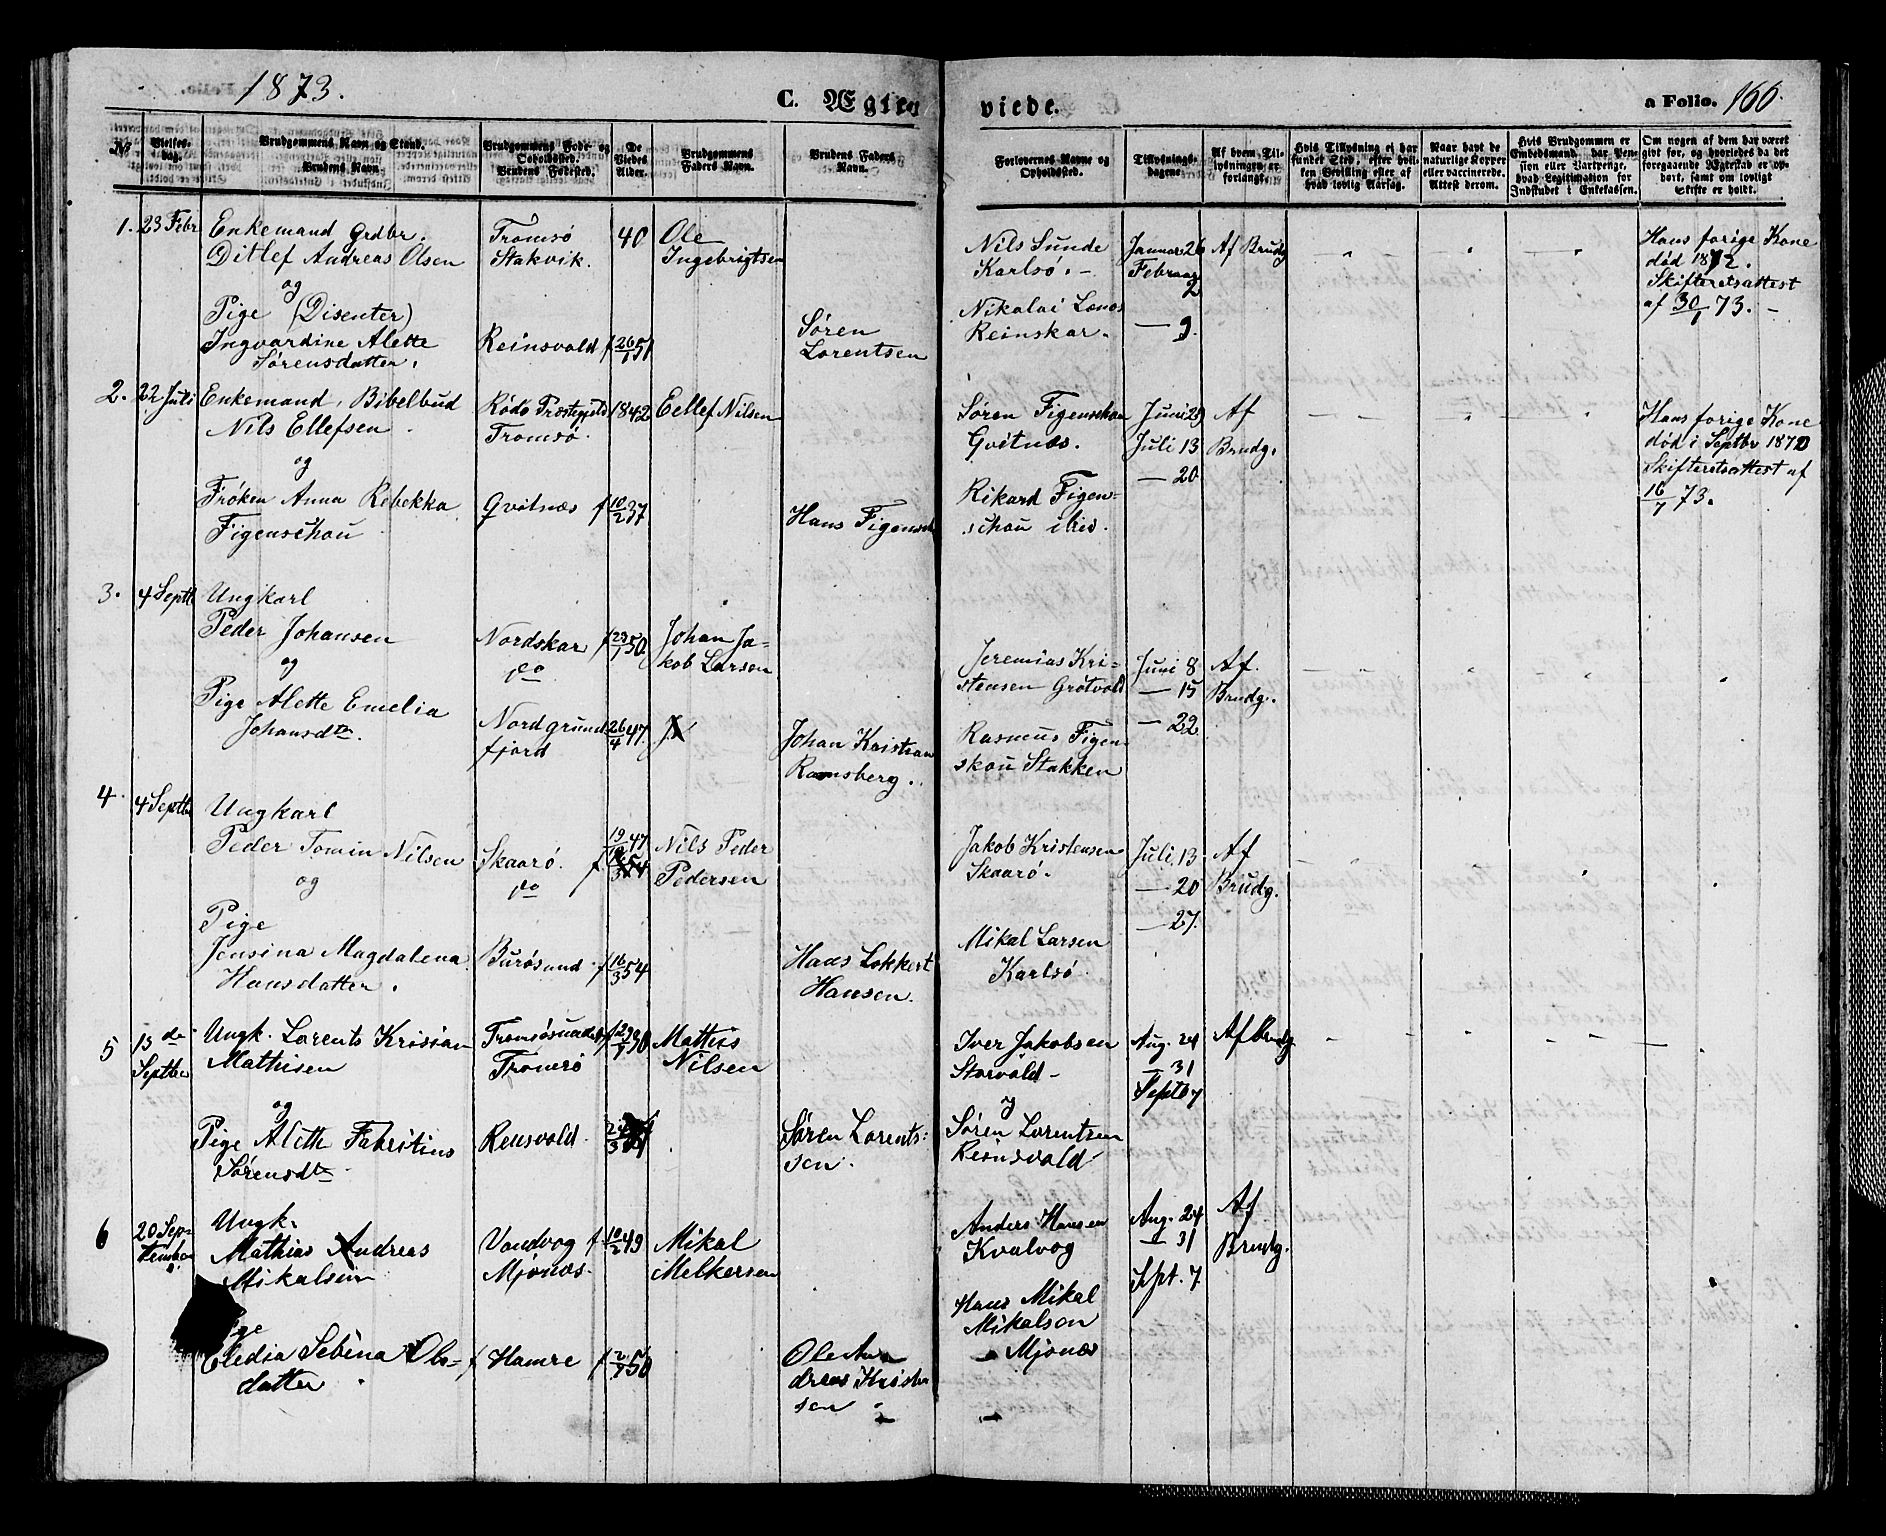 1873.
C. Ægteviede.
a Folio. 166.
No
Vielses-dag.
Brudgommens Navn og Stand.
Brudens Navn.
Brudgommens Føde- og Opholdssted.
Brudens Fødested.
De Viedes Alder.
Brudgommens Faders Navn.
Brudens Faders Navn.
Forlovernes Navne og Opholdssted.
Tillysnings-dagene.
Af hvem Tillysningen er forlangt.
Hvis Tillysning ei har fundet Sted, efter hvilken Bevilling eller af hvad lovlig Aarsag.
Naar havt de naturlige Kopper eller vaccinerede. Attest derom.
Hvis Brudgommen er Embedsmand, har Pension eller Vartpenge, hvad Legitimation for Indskudet i Enkekassen.
Om nogen af dem har været gift før, og hvorledes da det foregaaende Ægteskab er ophørt, samt om lovligt Skifte er holdt.
1. 23 Febr
Enkemand Grdbr.
Ditlef Andreas Olsen
og
Pige (Disenter)
Ingvardine Alette
Sørensdatter.
Tromsø
Stakvik.
Reinsvold f 26/1 51
40
Ole
Ingebrigtsen
Søren
Lorentsen
Nils Sunde
Karlsø. –
Nikolai
Reinskar.
Januar 26
Februar
2
— 9.
Af Brudg
Hans forige Kone
død 1872.
Skifteretsattest
af 30/1 73. –
2. 22 Juli
Enkemand, Bibelbud
Nils Ellefsen
og
Frøken Anna Rebekka
Figenschou
Rødø Præstegjeld
Tromsø.
Gvitnæs f 10/2 37
1842
Eellef Nilsen
Hans Figensch
Søren Figenschou
Gvitnæs.
Rikard Figen-
schou ibid.
Juni 29
Juli 13
— 20
Af
Brudg.
Hans forige Kone
død i Septbr 1872
Skifteretsattest af
16/7 73.
3. 4 Septb
Ungkarl
Peder Johansen
og
Pige Alette Emelia
Johansdtr.
Nordskar f 23/1 50
do
Nordgrund
fjord
26/4 47
Johan Ja-
kob Larsen
Johan Kristian
Ramsberg.
Jeremias Kri-
stensen Grøtvold
Rasmus Figen
skou Stakken
Juni 8
— 15
— 22
Af
Brudg.
4. 4 Septbr
Ungkarl
Peder Tomin Nilsen
og
Pige
Jensina Magdalena
Hansdatter.
Skaarø.
do
Burøsund f 16/3 54
47
Nils Peder
Pedersen
Hans Lokkert
Hansen.
Jakob Kristensen
Skaarø.
Mikal Larsen
Karlsø
Juli 13
— 20
— 27.
Af
Brudg.
5 15de
Septbr
Ungk. Lorents Krisian
Mathisen
og
Pige Alette Fabritius
Sørensdtr
Tromsøsundet
Tromsø
Rensvold.
Mathis
Nilsen
Søren Lorents-
sen.
Iver Jakobsen
Storvold –
og
Søren Lorentsen
Reinsvold
Aug. 24
— 31
Septb 7
Af Brudg.
6 20 Sep-
tember
Ungk.
Mathias Andreas
Mikalsen
Eledia Sebina Ols-
datter
Vandvog f 10/2 49
Mjønes.
Hamre f 2/7 50
Mikal
Melkersen
Ole An
dreas Kristen
sen
Anders Hansen
Kvalvog
Hans Mikal
Mikalsen
Mjønes
Aug. 24
— 31
Sept. 7
Af
Brudg.